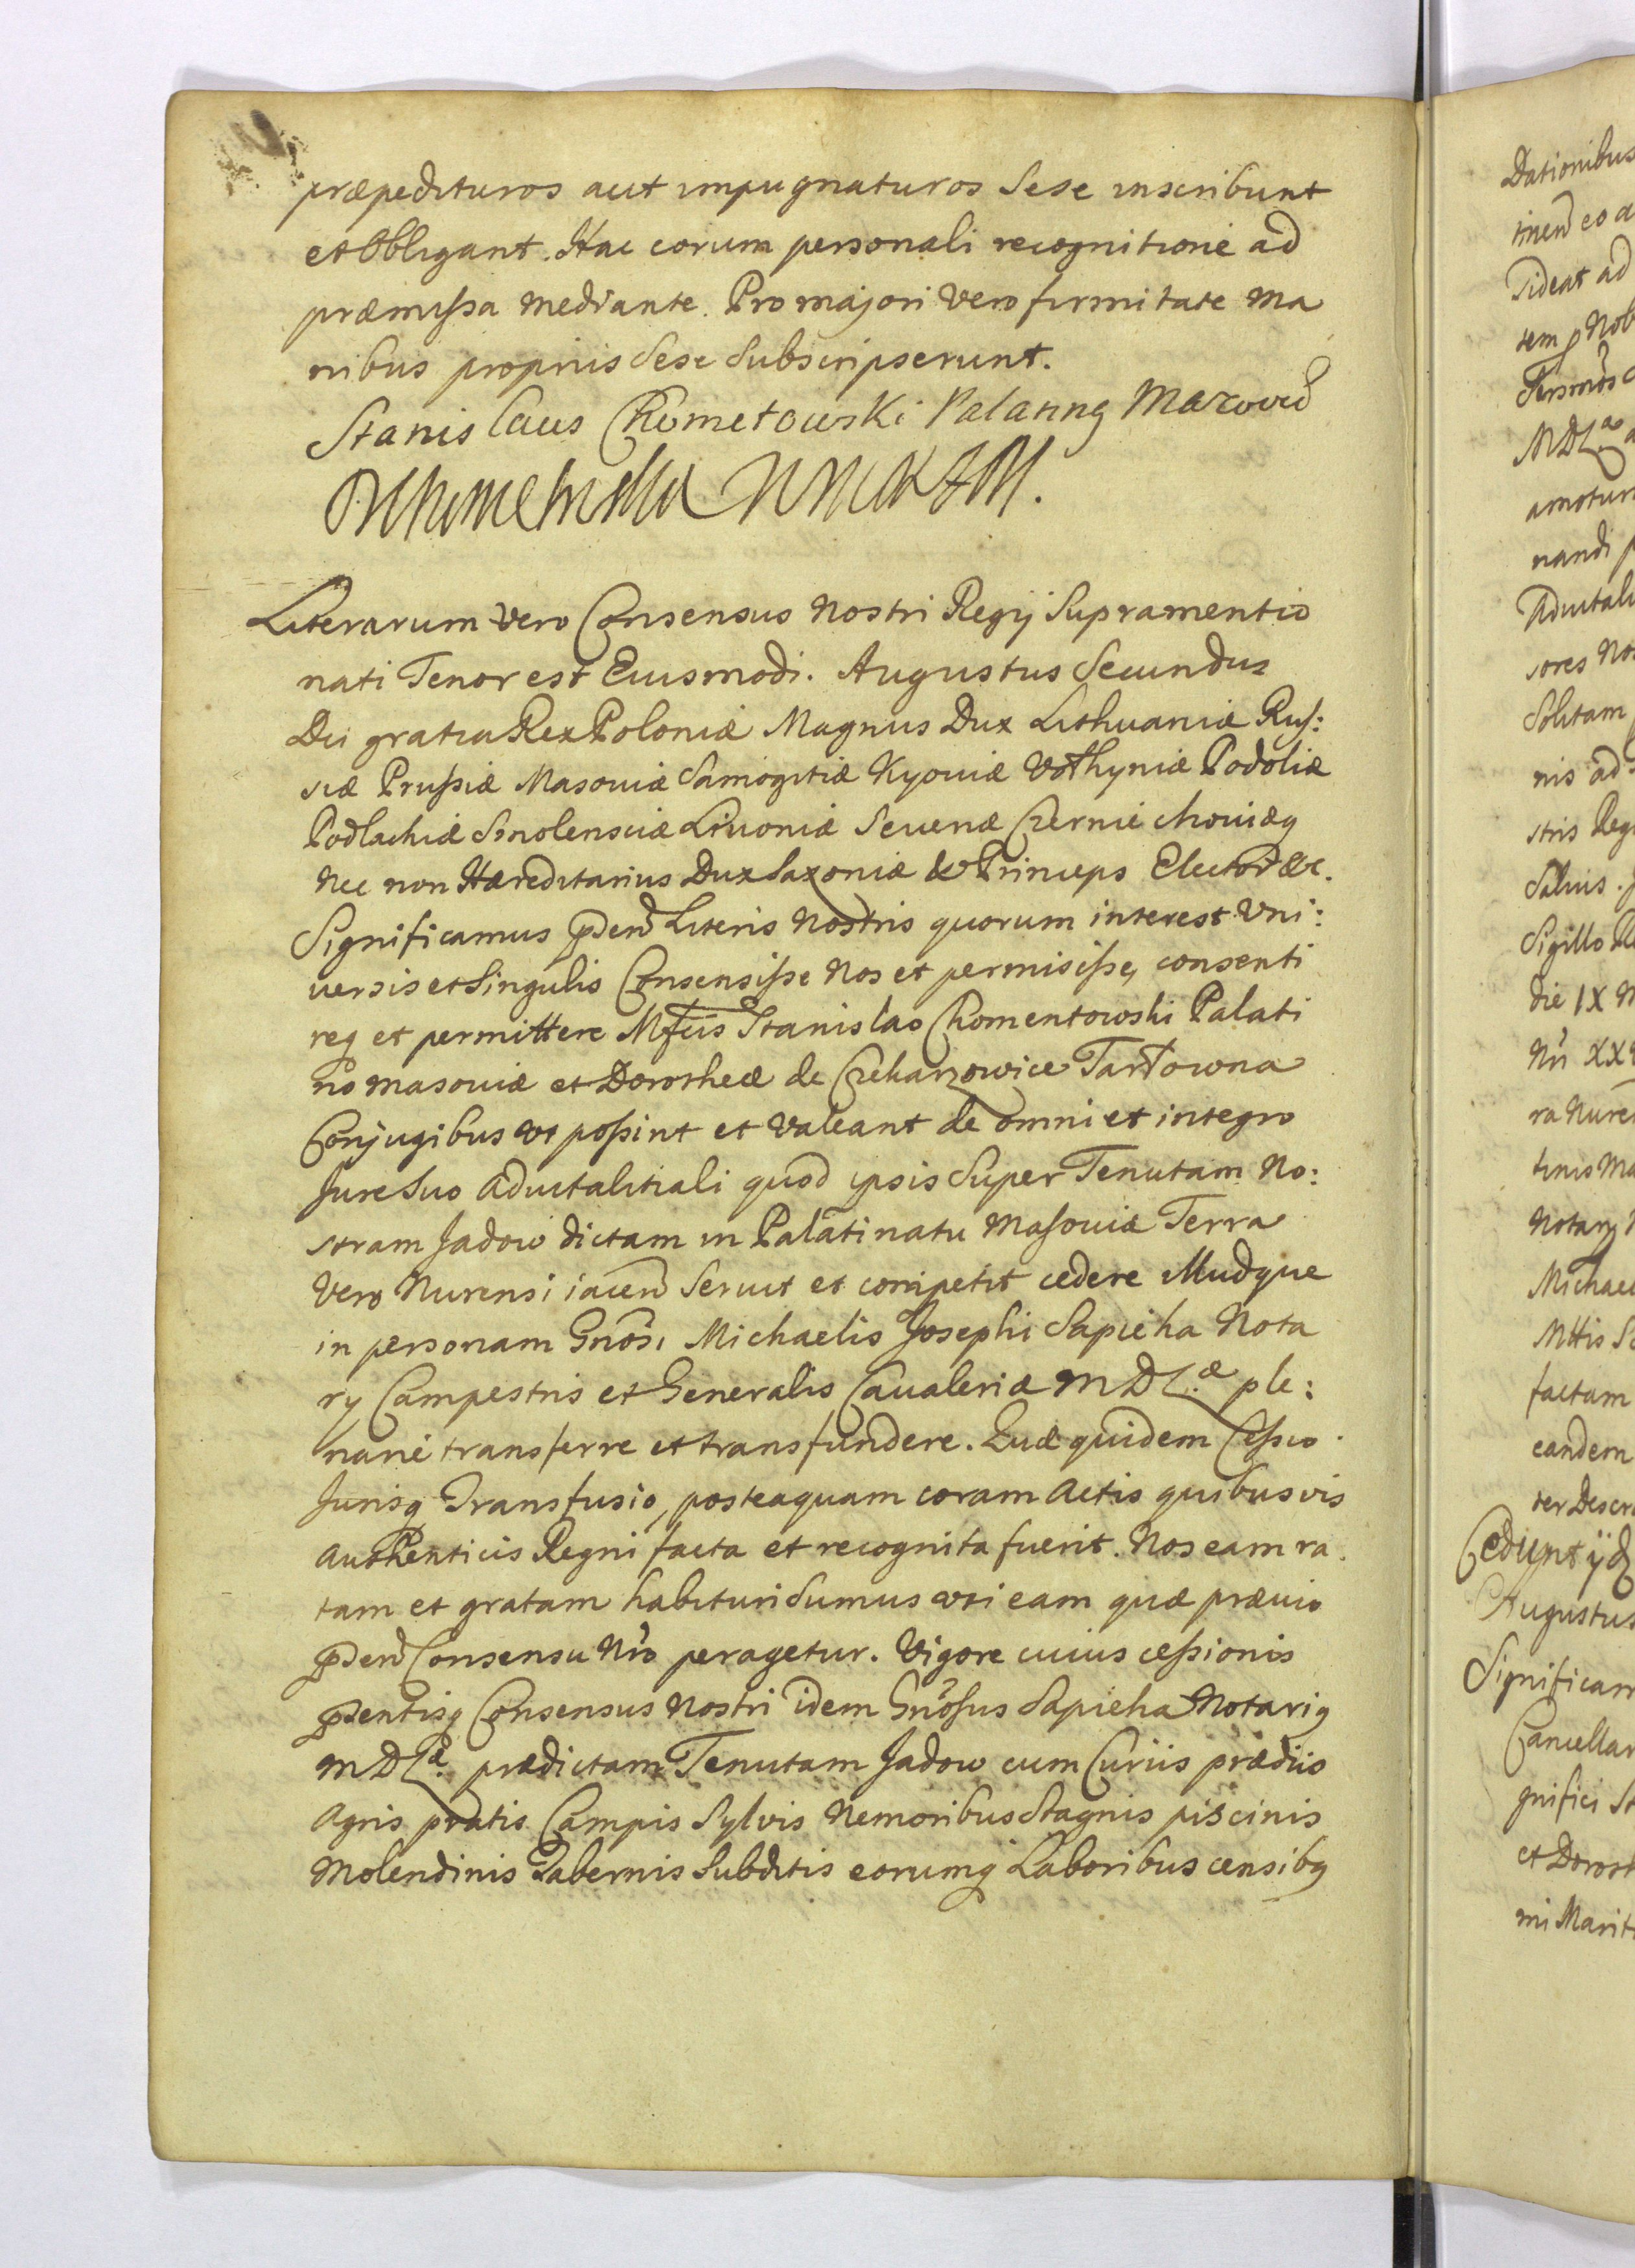 præpedituros aut impugnaturos Sese inscribunt
et Obligant. Hac eorum personali recognitione ad
præmissa mediante. Pro majori Vero firmitate Ma
nibus proprijs Sese Subscripserunt.
Stanislaus Chometowski Palating Mazovi
Literarum Vero Consensus Nostri Regij Supramentio
nati Tenor est Eiusmodi. Augustus Secundus
Dei gratia Rex Poloniæ Magnus Dux Lithuaniæ Rus:
siæ Prussiæ Masoviæ Samogitiæ Kyoviæ Volhyniæ Podoliæ
Podlachiæ Smolensciæ Livoniæ Severiæ Czernie choviæq
Nec non Hæreditarius Dux Saxoniæ & Princeps Elector &c.
Significamus pden Literis Nostris quorum interest Uni:
versis et Singulis Consensisse Nos et permisisse, consenti
req et permittere Mfcis Stanislao Chomentowski Palati
no Masoviæ et Dorotheæ de Czekarzowice Tarłowna
Conjugibus ut possint et Valeant de omni et integro
Jure Suo Advitalitiali quod ipsis Super Tenutam No:
stram Jadow dictam in Palatinatu Masoviæ Terra
Vero Nurensi iacen Servit et competit cedere illudque
in personam Gnosi Michaelis Josephi Sapieha Nota
ry Campestris et Generalis Cavaleriæ M D L.æ ple:
narie transferre et transfundere. Quæ quidem Cessio
Jurisq Transfusio, posteaquam coram Actis quibusvis
Authenticis Regni facta et recognita fuerit. Nos eam ra
tam et gratam habituri sumus uti eam quæ prævio
pden Consensu Nro peragetur. Vigore cuius cessionis
pdentisq Consensus Nostri idem Gnosus Sapieha Notariq
M D L.æ prædictam Tenutam Jadow cum Curiis prædiis
Agris pratis Campis Sylvis Nemoribus Stagnis piscinis
Molendinis Tabernis Subditis eorumq Laboribus censibq
Dationibus
nandi
sores
Solitam
nis ad
stris
Salvis.
Sigillo
die IX
Notarij
factam
eandem
Cedunt
Augustus
Significam
Cancellar
gnifici
et Doroth
mi Marit